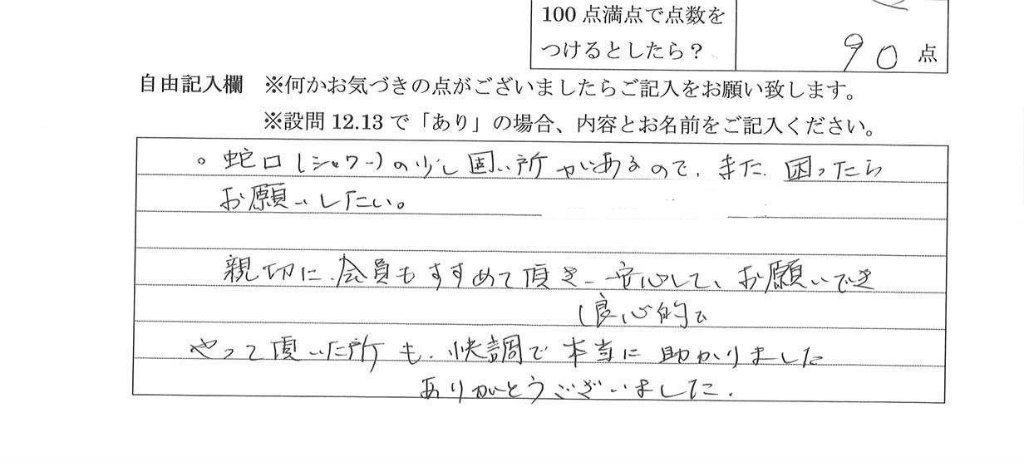 100点満点で点数を
つけるとしたら？
90 点
自由記入欄 ※何かお気づきの点がございましたらご記入をお願い致します。
※設問12.13で「あり」の場合、内容とお名前をご記入ください。
。蛇口(シャワー)の少し固い所があるので、また、困ったら
お願いしたい。
親切に、会員もすすめて頂き、安心して、お願いでき
(良心的で
やって頂いた所も、快調で本当に助かりました
ありがとうございました。